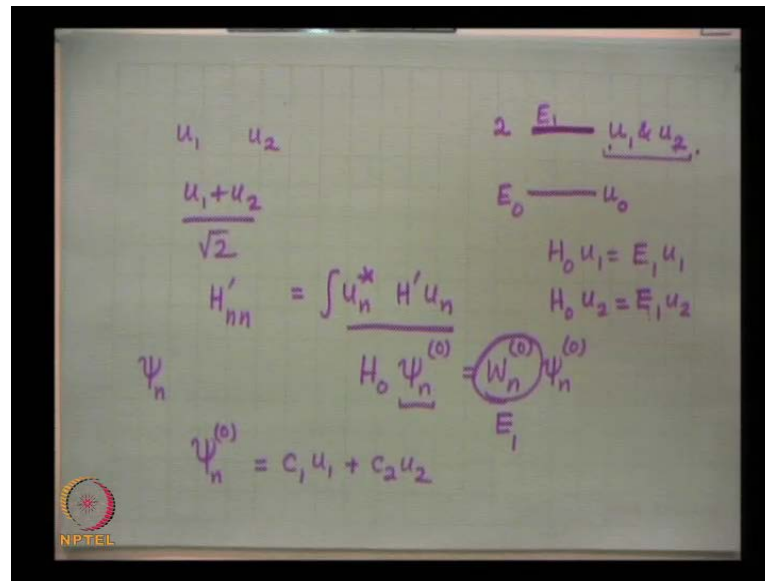 u₁ u₂
2 E₁ u₁ & u₂.
(u₁ + u₂)/√2
E₀ u₀
H₀ u₁ = E₁ u₁
H₀ u₂ = E₁ u₂
H'ₙₙ = ∫ uₙ* H' uₙ
ψₙ
H₀ ψₙ⁽⁰⁾ = Wₙ⁽⁰⁾ ψₙ⁽⁰⁾
E₁
ψₙ⁽⁰⁾ = c₁ u₁ + c₂ u₂
NPTEL